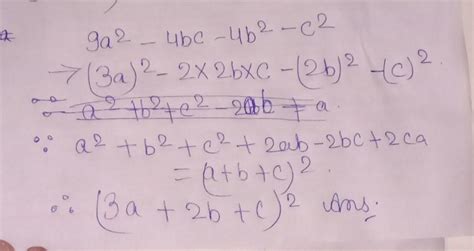 9a² - 4bc - 4b² - c²
→ (3a)² - 2×2b×c - (2b)² - (c)².
∵ a² + b² + c² - 2ab + a.
∵ a² + b² + c² + 2ab - 2bc + 2ca
= (a+b+c)².
∴ (3a + 2b + c)² Ans.